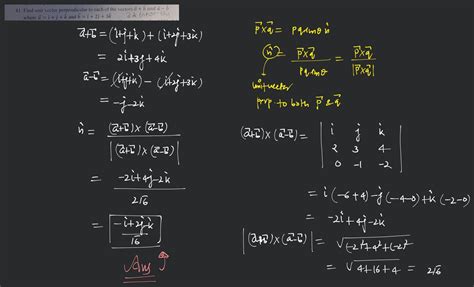 4) Find unit vector perpendicular to each of the vectors a⃗ + b⃗ and a⃗ - b⃗
where a⃗ = i + j + k and b⃗ = i + 2j + 3k
a⃗+b⃗ = (i+j+k) + (i+2j+3k)
= 2i+3j+4k
a⃗-b⃗ = (i+j+k) - (i+2j+3k)
= -j-2k
n̂ = (a⃗+b⃗) × (a⃗-b⃗)
|(a⃗+b⃗) × (a⃗-b⃗)|
= -2i+4j-2k
2√6
= -i+2j-k
√6
Ans
p⃗×q⃗ = pq sinθ n̂
n̂ = p⃗×q⃗ / pq sinθ = p⃗×q⃗ / |p⃗×q⃗|
unit vector
prp to both p⃗ & q⃗
(a⃗+b⃗)×(a⃗-b⃗) =
i j k
2 3 4
0 -1 -2
= i(-6+4) -j(-4-0) +k(-2-0)
= -2i+4j-2k
|(a⃗+b⃗)×(a⃗-b⃗)| = √(-2)²+4²+(-2)²
= √4+16+4 = 2√6